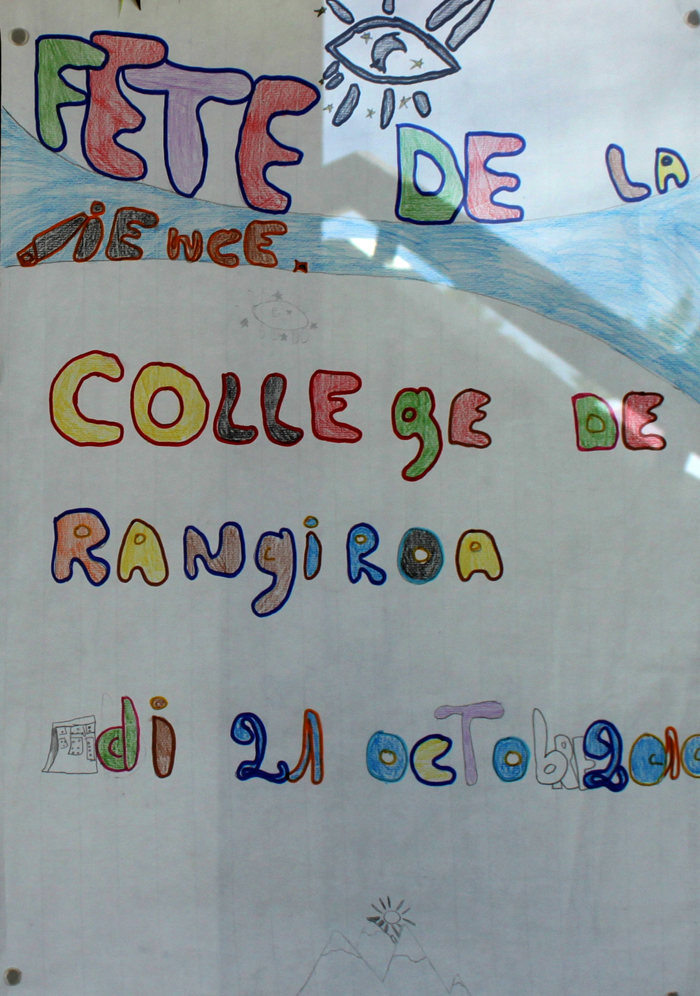 FETE DE LA
SiENCE.
COLLEgE DE
RANgiROA
di 21 OCTObRE 2010